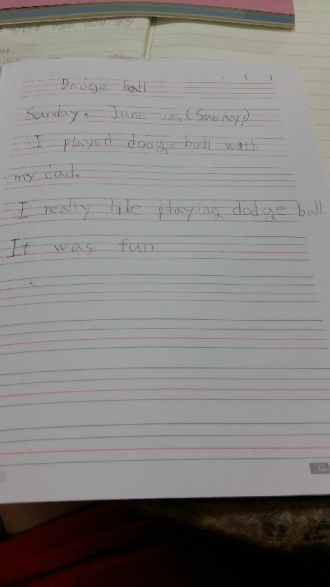 Dodge ball
Sunday, June 28, (Sunny)
I played dodge ball with
my dad.
I really like playing dodge ball.
It was fun